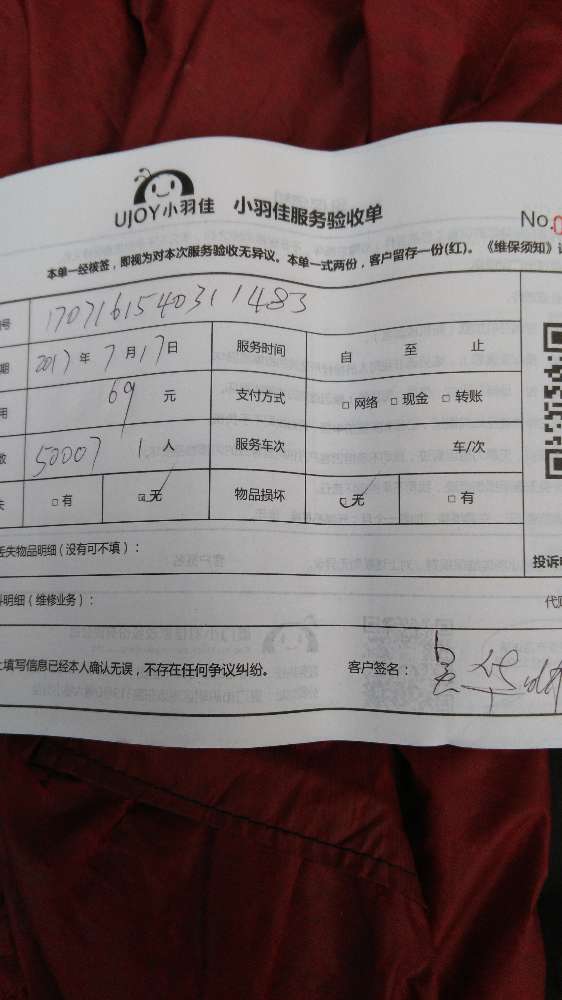 UJOY小羽佳 小羽佳服务验收单
No.0
本单一经核签，即视为对本次服务验收无异议。本单一式两份，客户留存一份(红)。《维保须知》
号 1707161540311483
期 2017 年 7 月 17 日 服务时间 自 至 止
用 69 元 支付方式 □网络 □现金 □转账
数 50007 1 人 服务车次 车/次
失 □有 □无 物品损坏 □无 □有
丢失物品明细（没有可不填）： 投诉
明细（维修业务）：
填写信息已经本人确认无误，不存在任何争议纠纷。 客户签名：